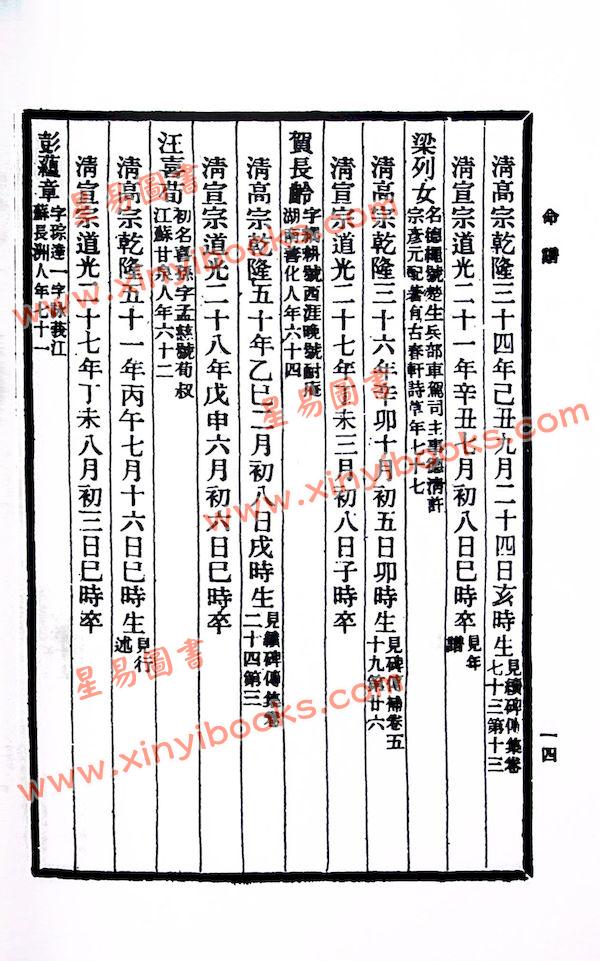 命譜
一四
清高宗乾隆三十四年己丑九月二十四日亥時生 見續碑傳集卷七十三第十三
清宣宗道光二十一年辛丑七月初八日巳時卒 見年譜
梁列女 名德繩號楚生兵部車駕司主事德清許宗彥元配著有古春軒詩草年七十七
清高宗乾隆三十六年辛卯十月初五日卯時生 見碑傳補卷五十九第廿六
清宣宗道光二十七年丁未三月初八日子時卒
賀長齡 字耦耕號西涯晚號耐庵湖南善化人年六十四
清高宗乾隆五十年乙巳二月初八日戌時生 見續碑傳集卷二十四第三
清宣宗道光二十八年戊申六月初六日巳時卒
汪喜荀 初名喜孫字孟慈號荀叔江蘇甘泉人年六十二
清高宗乾隆五十一年丙午七月十六日巳時生 見行述
清宣宗道光二十七年丁未八月初三日巳時卒
彭蘊章 字琮達一字詠莪江蘇長洲人年七十一
星易圖書
www.xinyibooks.com
星易圖書
www.xinyibooks.com
星易圖書
www.xinyibooks.com